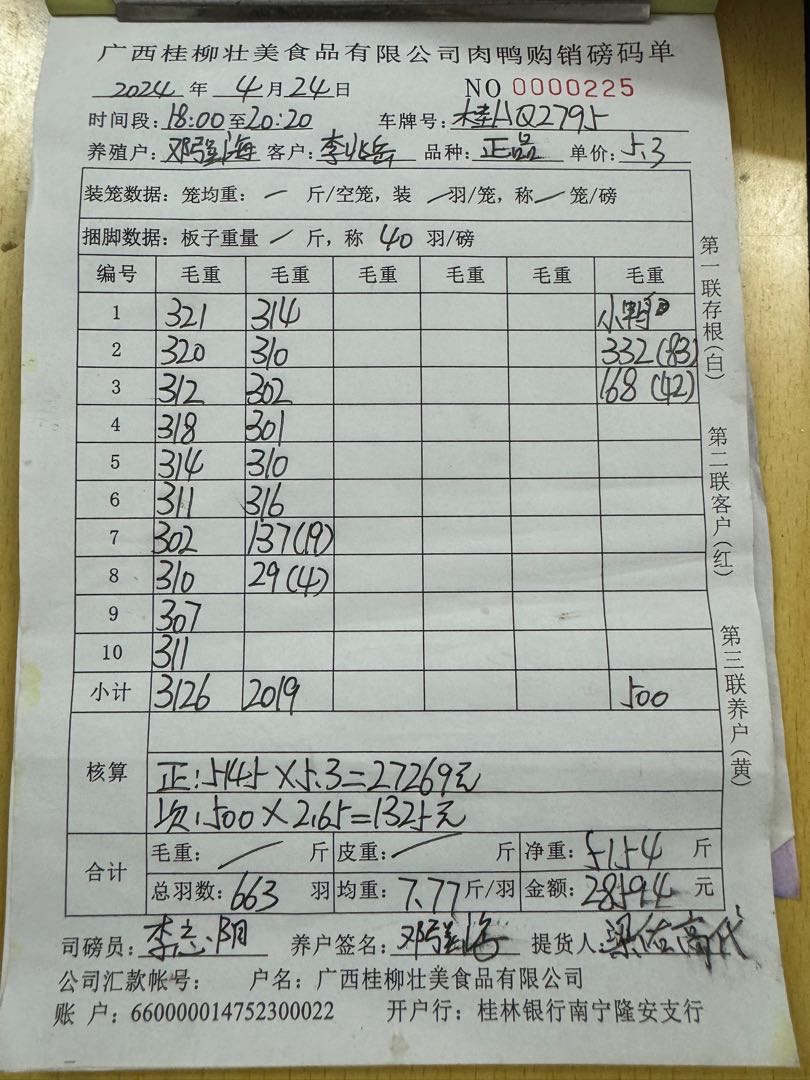 广西桂柳壮美食品有限公司肉鸭购销磅码单
2024 年 4 月 24 日 NO 0000225
时间段: 18:00 至 20:20 车牌号: 桂AQ2795
养殖户: 邓强海 客户: 李兆岳 品种: 正品 单价: 5.3
装笼数据: 笼均重: 一 斤/空笼, 装 一 羽/笼, 称 一 笼/磅
捆脚数据: 板子重量 一 斤, 称 40 羽/磅
编号 毛重 毛重 毛重 毛重 毛重 毛重
1 321 314 小鸭
2 320 310 332(83)
3 312 302 168(42)
4 318 301
5 314 310
6 311 316
7 302 137(19)
8 310 29(4)
9 307
10 311
小计 3126 2019 500
核算
正:5145×5.3=27269元
次:500×2.65=1325元
合计
毛重: / 斤 皮重: / 斤 净重: 5154 斤
总羽数: 663 羽 均重: 7.77 斤/羽 金额: 28594 元
司磅员: 李志阴 养户签名: 邓强海 提货人: 梁佑高代
公司汇款帐号: 户名: 广西桂柳壮美食品有限公司
账 户: 660000014752300022 开户行: 桂林银行南宁隆安支行
第一联存根(白)
第二联客户(红)
第三联养户(黄)